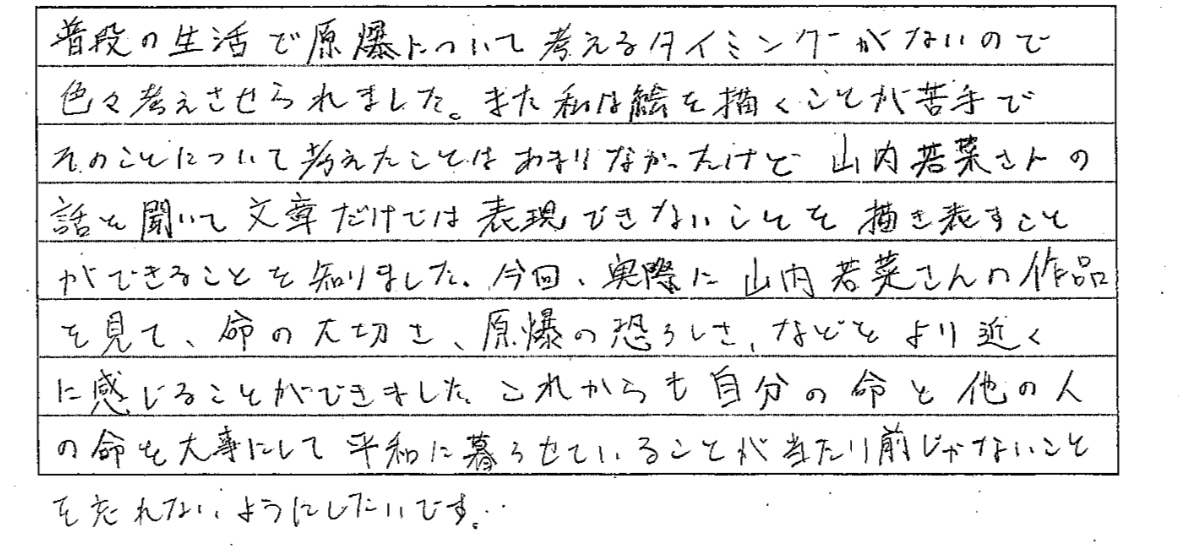 普段の生活で原爆について考えるタイミングがないので
色々考えさせられました。また私は絵を描くことが苦手で
そのことについて考えたことはあまりなかったけど 山内若菜さんの
話を聞いて文章だけでは表現できないことを描き表すこと
ができることを知りました。今回、実際に山内若菜さんの作品
を見て、命の大切さ、原爆の恐ろしさ、などをより近く
に感じることができました。これからも自分の命と他の人
の命を大事にして平和に暮らせていることが当たり前じゃないこと
を忘れないようにしたいです。